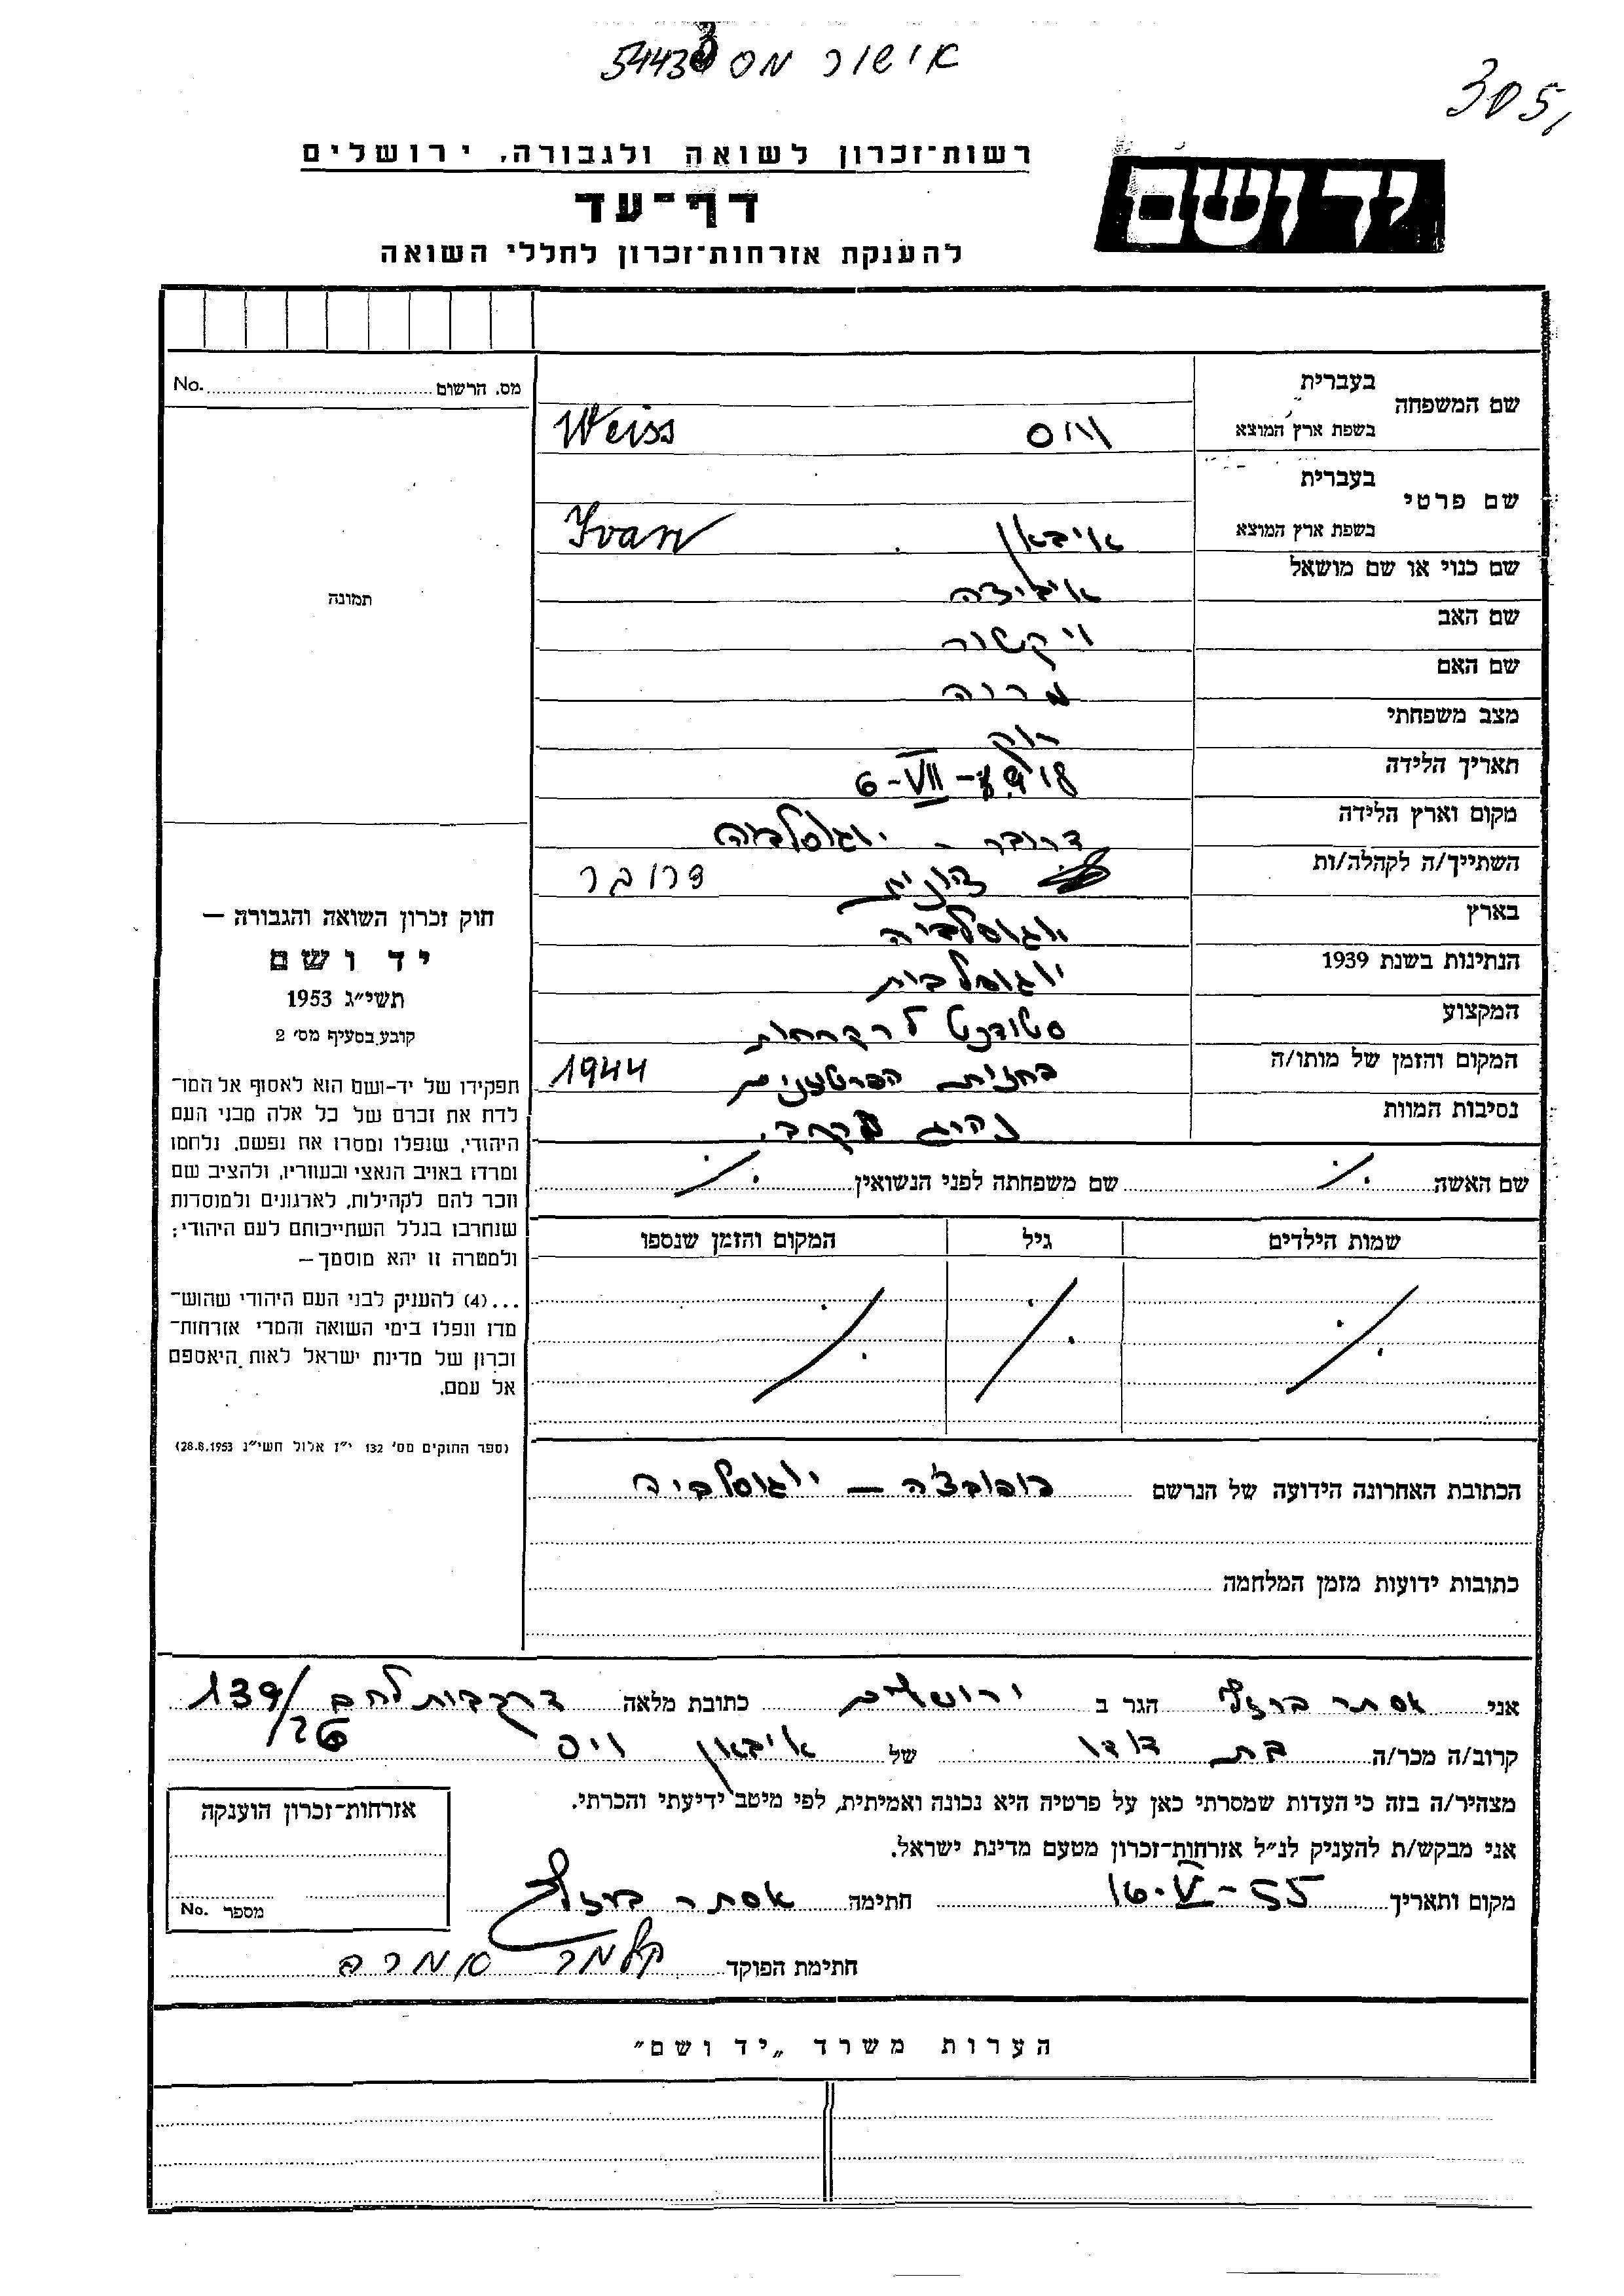 אישור מס 5443
305,
יד ושם
רשות־זכרון לשואה ולגבורה, ירושלים
דף־עד
להענקת אזרחות־זכרון לחללי השואה
מס. הרשום No.
שם המשפחה
בעברית
בשפת ארץ המוצא וויס Weiss
שם פרטי
בעברית
בשפת ארץ המוצא איבאן Ivan
שם כנוי או שם מושאל איביצה
שם האב ויקטור
שם האם
מצב משפחתי רוק
תאריך הלידה 6-VII-1918
מקום וארץ הלידה דרובר - יוגוסלביה
השתייך/ה לקהלה/ות דרובר
בארץ יוגוסלביה
הנתינות בשנת 1939 יוגוסלבית
המקצוע סטודנט לרקחות
המקום והזמן של מותו/ה בחזית הפרטיזנים 1944
נסיבות המוות נהרג בקרב.
שם האשה ./. שם משפחתה לפני הנשואין ./.
שמות הילדים גיל המקום והזמן שנספו
./. ./. ./.
הכתובת האחרונה הידועה של הנרשם - יוגוסלביה
כתובות ידועות מזמן המלחמה
תמונה
חוק זכרון השואה והגבורה —
יד ושם
תשי״ג 1953
קובע בסעיף מס׳ 2
תפקידו של יד-ושם הוא לאסוף אל המו־
לדת את זכרם של כל אלה מבני העם
היהודי, שנפלו ומסרו את נפשם, נלחמו
ומרדו באויב הנאצי ובעוזריו, ולהציב שם
וזכר להם לקהילות, לארגונים ולמוסדות
שנחרבו בגלל השתייכותם לעם היהודי;
ולמטרה זו יהא מוסמך—
...(4) להעניק לבני העם היהודי שהוש־
מדו ונפלו בימי השואה והמרי אזרחות־
זכרון של מדינת ישראל לאות היאספם
אל עמם.
(ספר החוקים מס׳ 132 י״ז אלול תשי״ג 28.8.1953)
אני אסתר הגר ב ירושלים כתובת מלאה 139/26
קרוב/ה מכר/ה בת דודו של איבאן ויס
מצהיר/ה בזה כי העדות שמסרתי כאן על פרטיה היא נכונה ואמיתית, לפי מיטב ידיעתי והכרתי.
אני מבקש/ת להעניק לנ״ל אזרחות־זכרון מטעם מדינת ישראל.
מקום ותאריך 16.V-55 חתימה אסתר
חתימת הפוקד
אזרחות־זכרון הוענקה
מספר No.
הערות משרד „יד ושם״